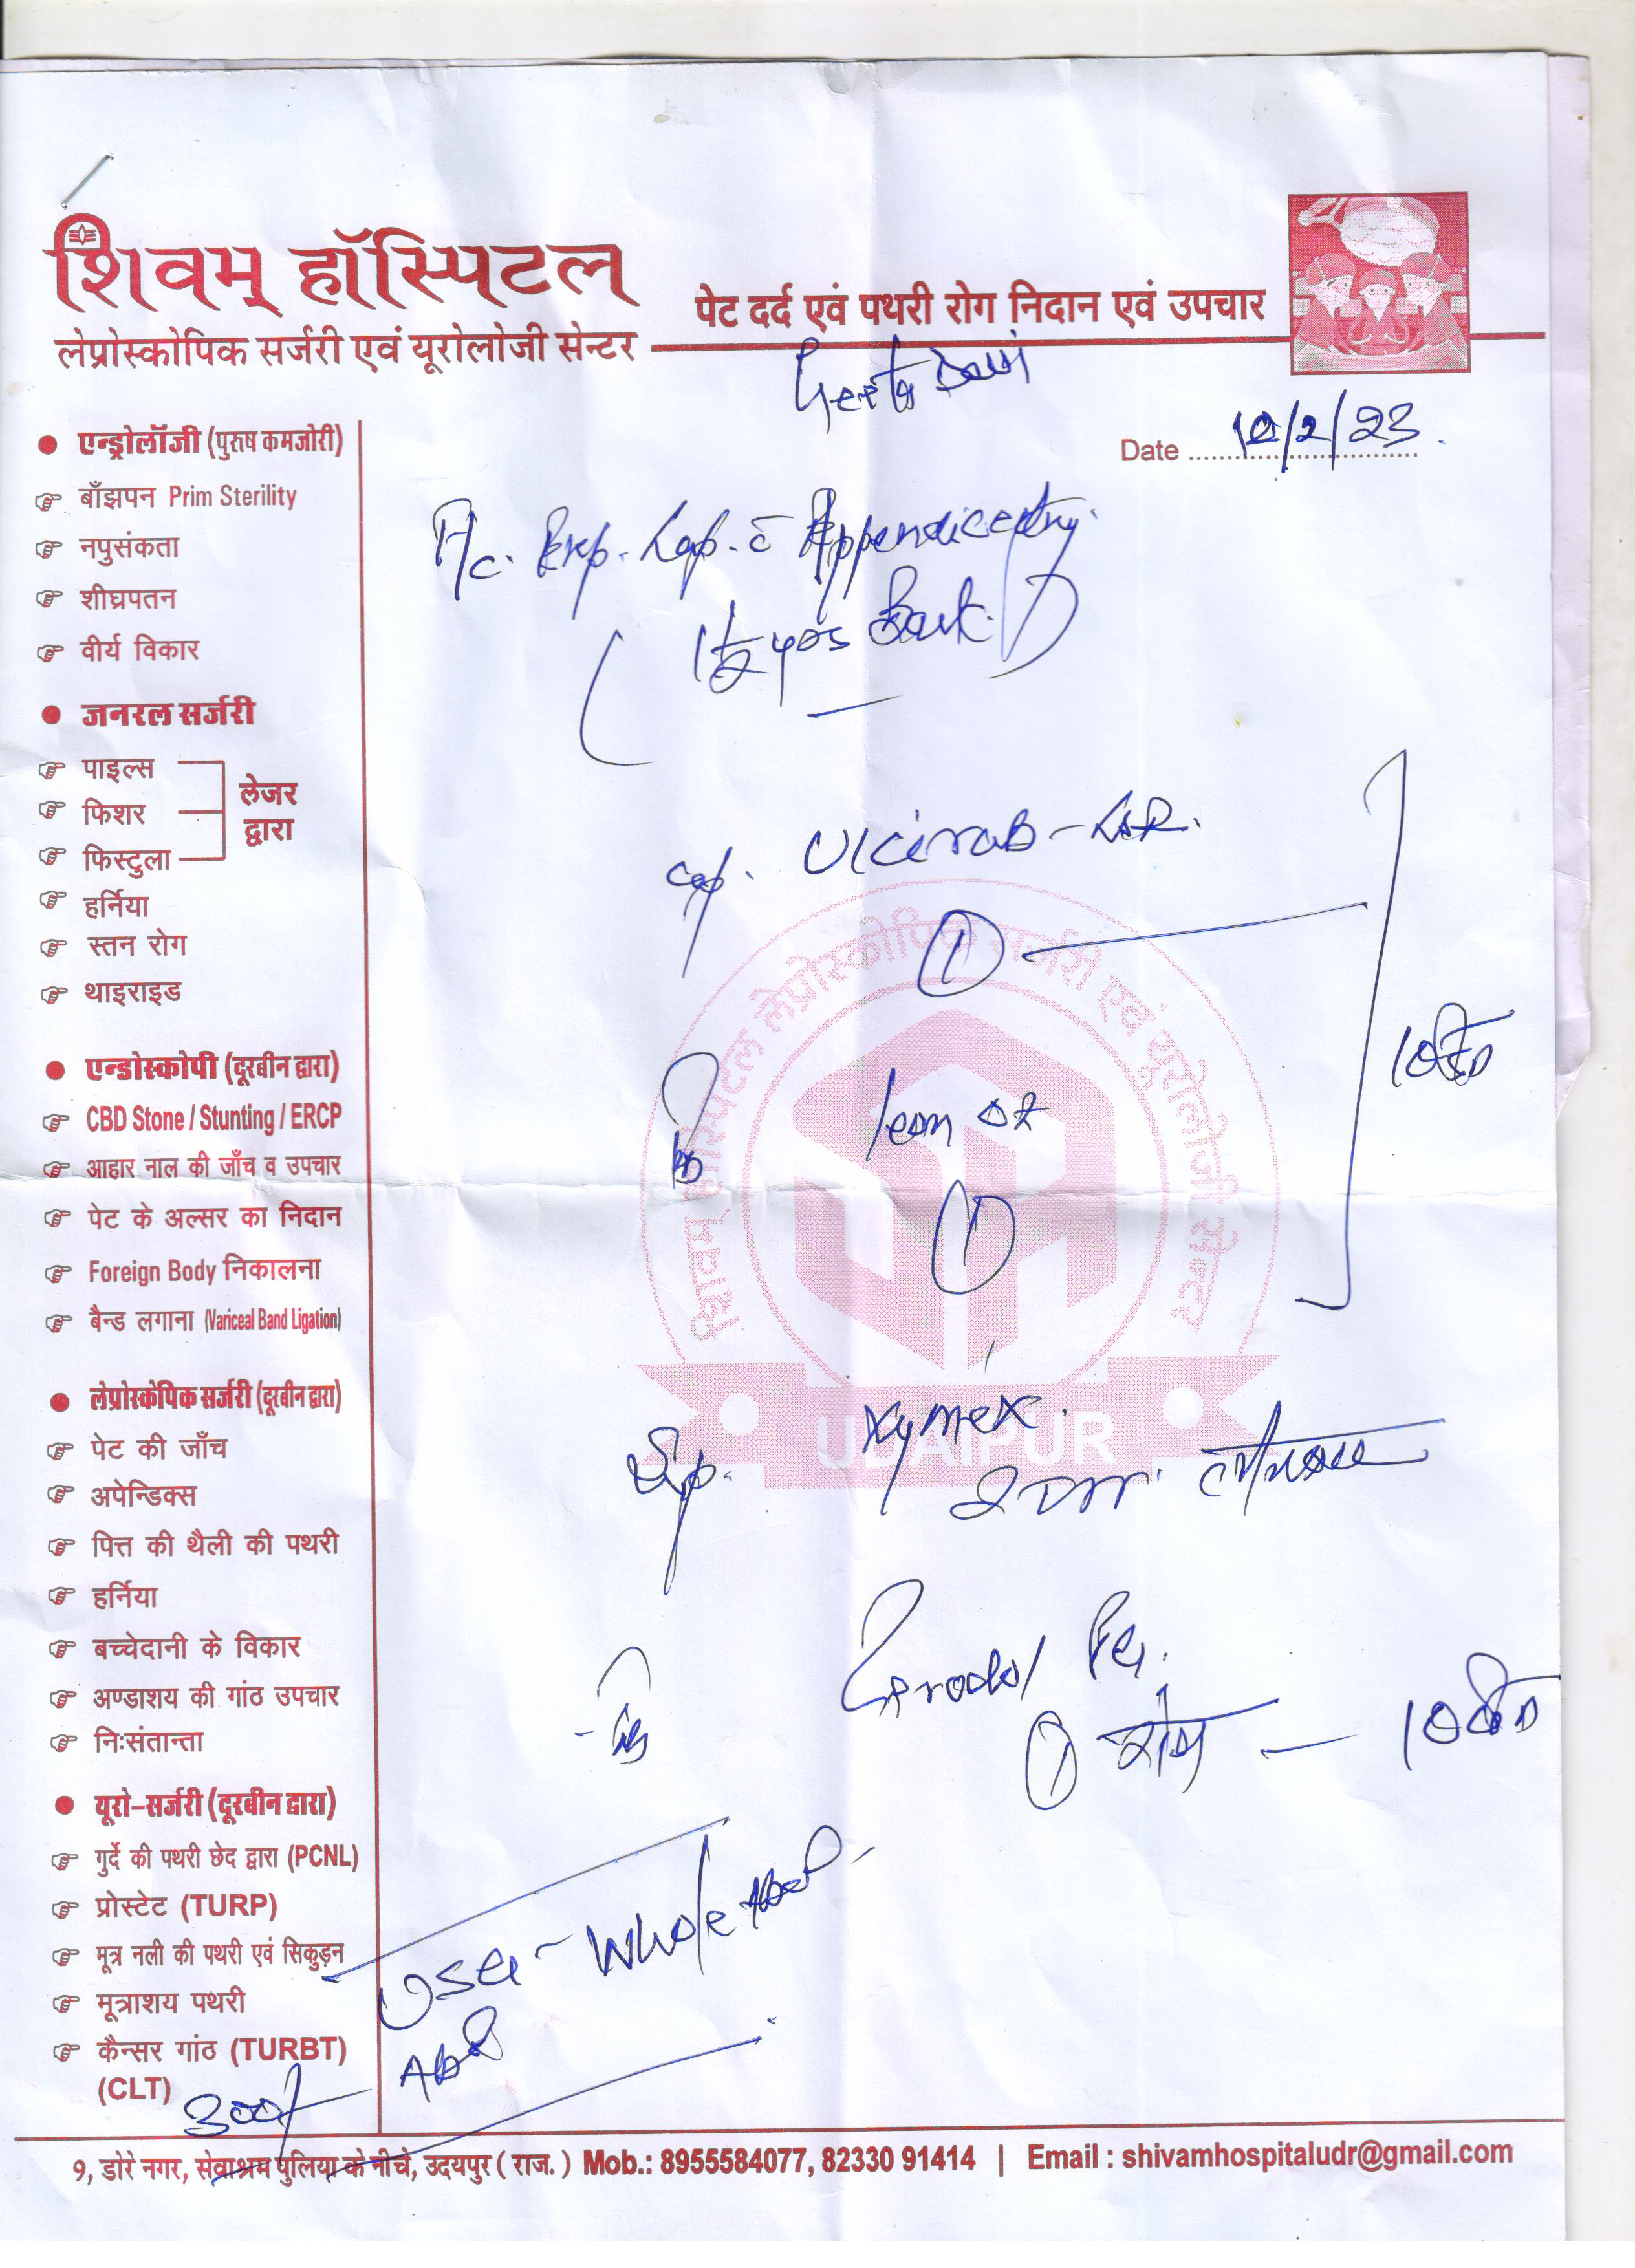 शिवम् हॉस्पिटल
लेप्रोस्कोपिक सर्जरी एवं यूरोलोजी सेन्टर
पेट दर्द एवं पथरी रोग निदान एवं उपचार
Geeta Devi
Date 10/2/23
• एन्ड्रोलॉजी (पुरुष कमजोरी)
बाँझपन Prim Sterility
नपुसंकता
शीघ्रपतन
वीर्य विकार
• जनरल सर्जरी
पाइल्स
फिशर
फिस्टुला
लेजर
द्वारा
हर्निया
स्तन रोग
थाइराइड
• एन्डोस्कोपी (दूरबीन द्वारा)
CBD Stone / Stunting / ERCP
आहार नाल की जाँच व उपचार
पेट के अल्सर का निदान
Foreign Body निकालना
बैन्ड लगाना (Variceal Band Ligation)
• लेप्रोस्केपिक सर्जरी (दूरबीन द्वारा)
पेट की जाँच
अपेन्डिक्स
पित्त की थैली की पथरी
हर्निया
बच्चेदानी के विकार
अण्डाशय की गांठ उपचार
निःसंतान्ता
• यूरो-सर्जरी (दूरबीन द्वारा)
गुर्दे की पथरी छेद द्वारा (PCNL)
प्रोस्टेट (TURP)
मूत्र नली की पथरी एवं सिकुड़न
मूत्राशय पथरी
कैन्सर गांठ (TURBT)
(CLT)
Exp. Lap. c̄ Appendicectomy.
(1½ yrs Back)
Cap. Ulcirab-LSR.
①
①
Syp. Xymex.
①
USG - Whole Abd
300/-
शिवम् हॉस्पिटल लेप्रोस्कोपिक सर्जरी एवं यूरोलोजी सेन्टर
UDAIPUR
9, डोरे नगर, सेवाश्रम पुलिया के नीचे, उदयपुर ( राज. ) Mob.: 8955584077, 82330 91414 | Email : shivamhospitaludr@gmail.com